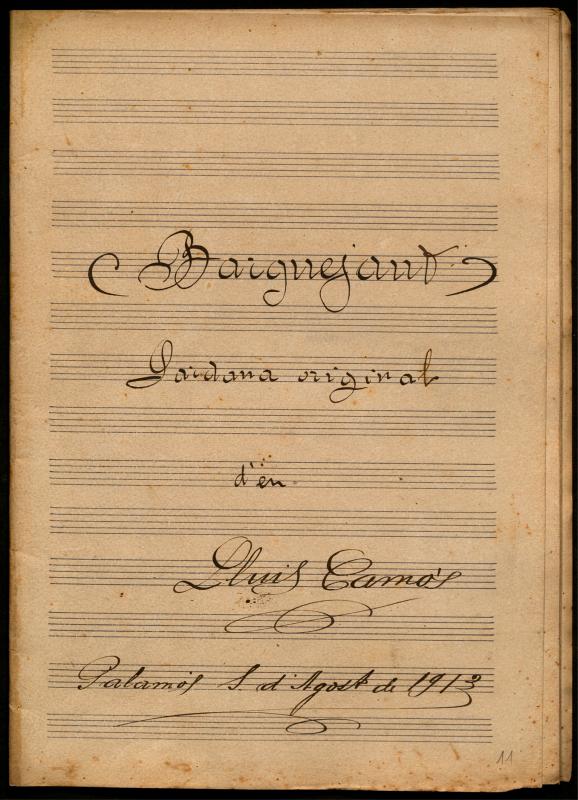 Barquejant
Sardana original
d'en
Lluis Camós
Palamós 5 d'Agost de 1913
11